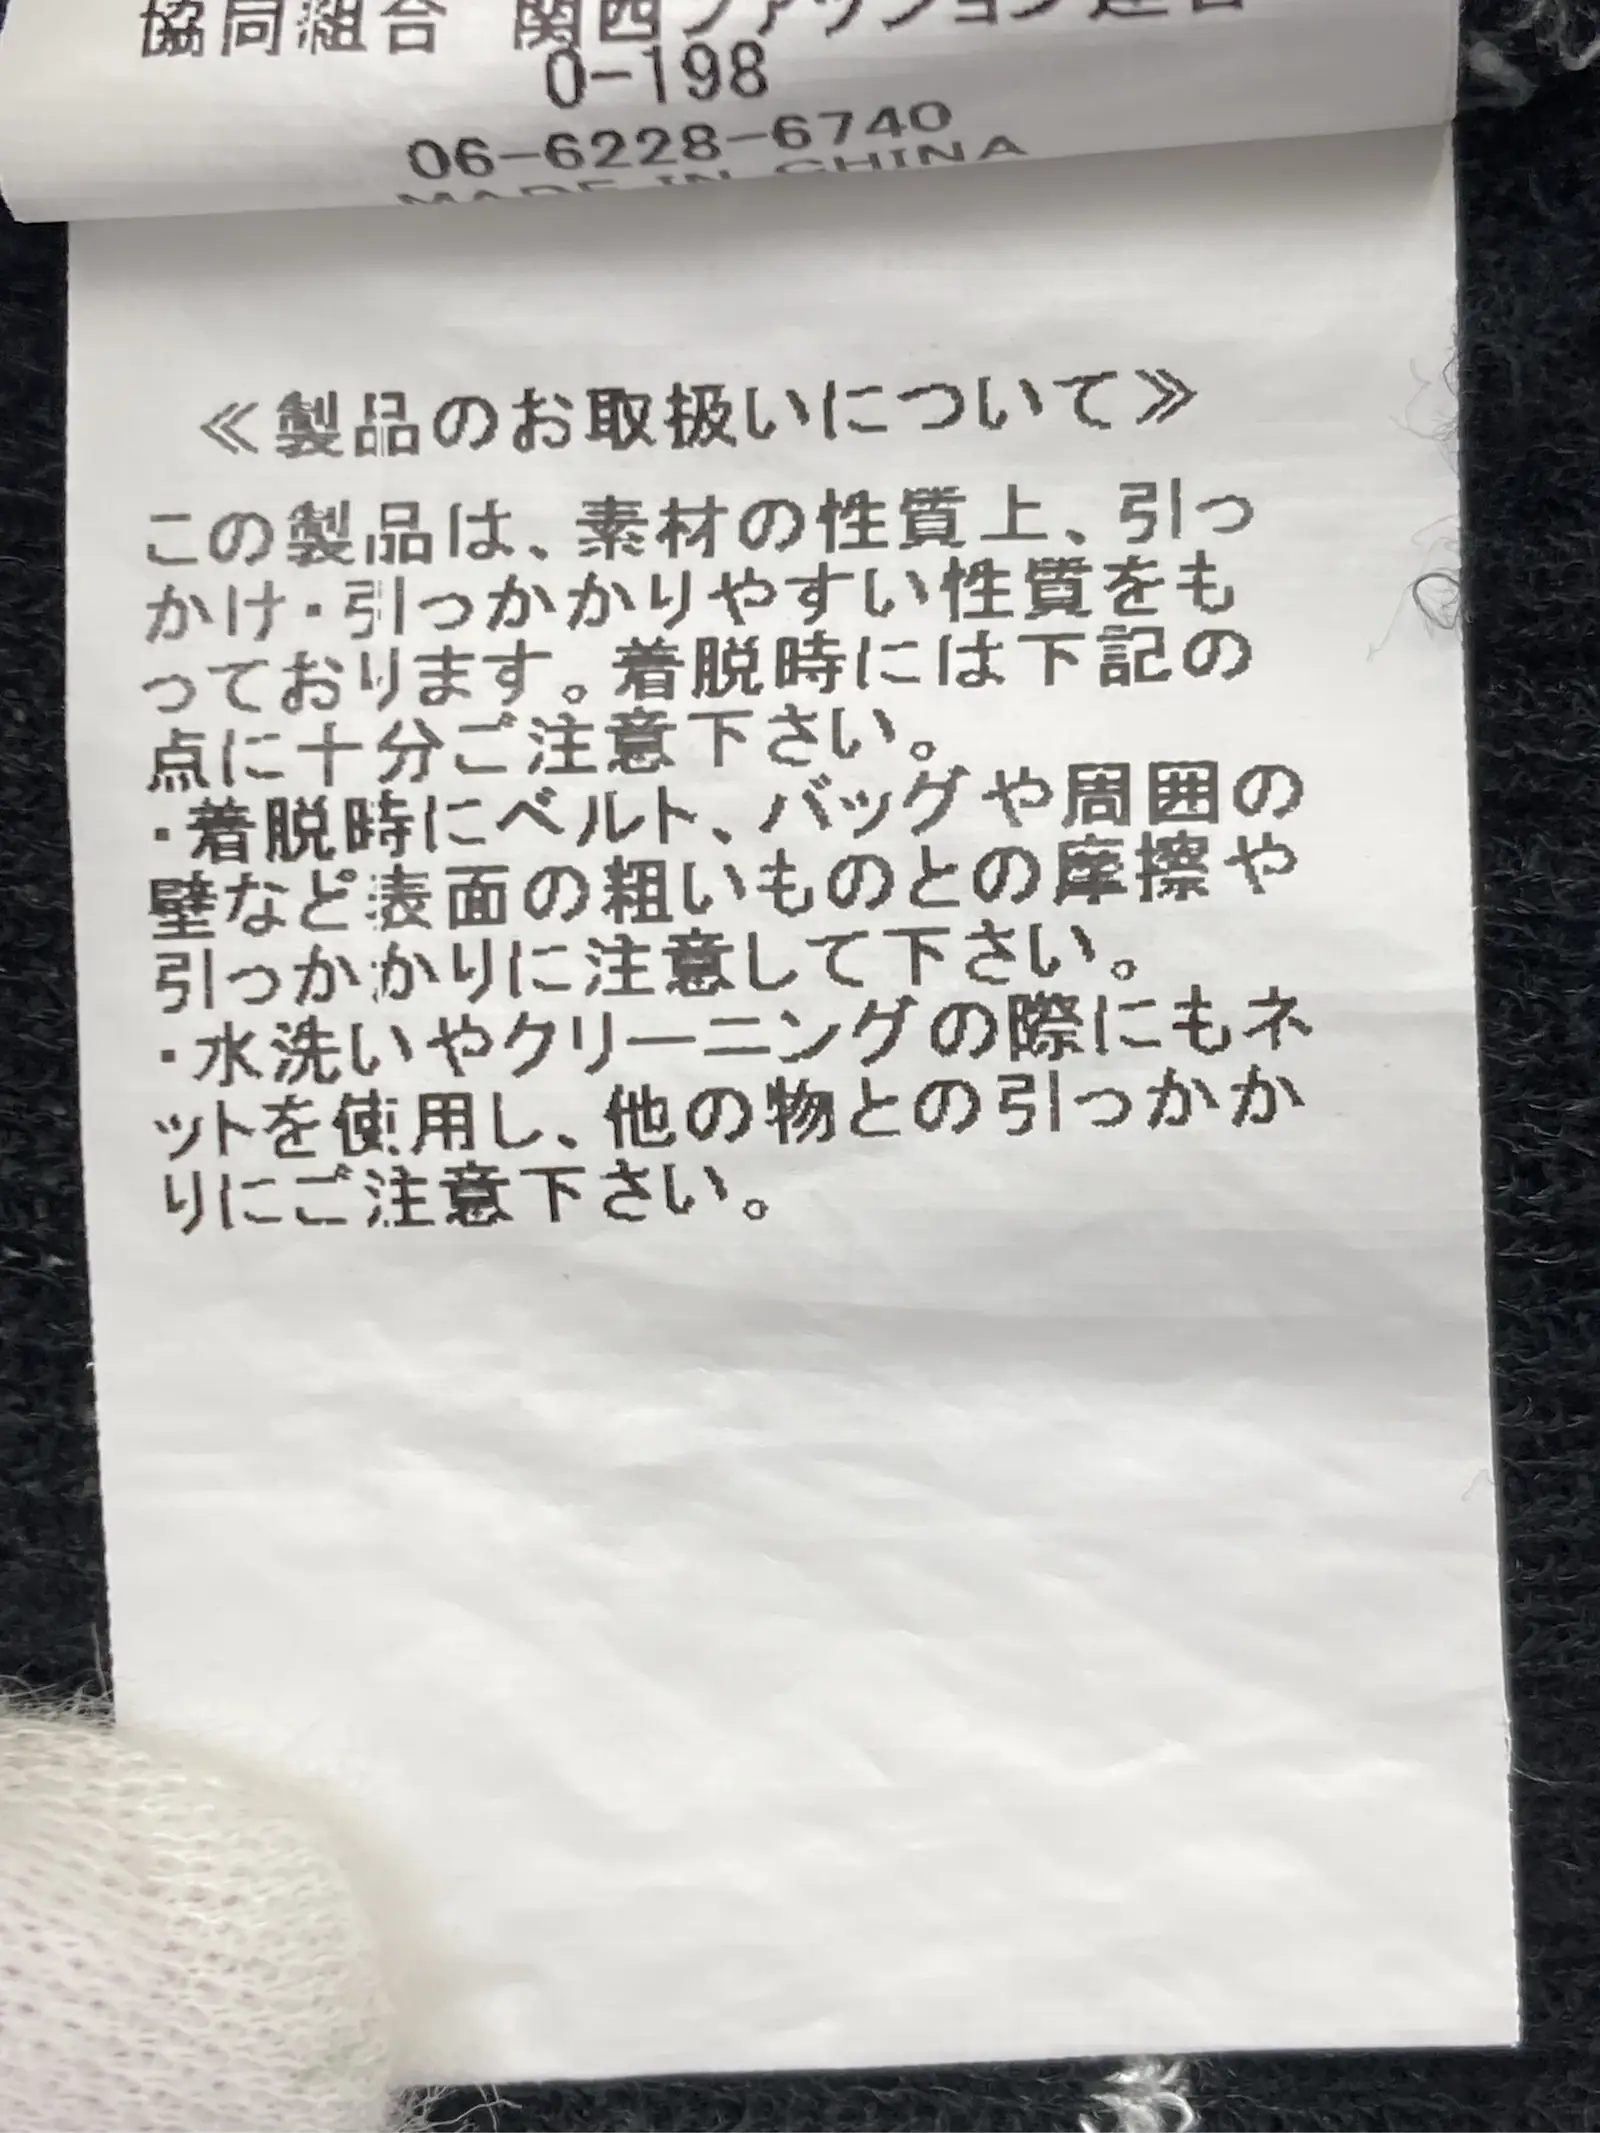 協同組合 関西ファッション連合
0-198
06-6228-6740
MADE IN CHINA
≪製品のお取扱いについて≫
この製品は、素材の性質上、引っ
かけ・引っかかりやすい性質をも
っております。着脱時には下記の
点に十分ご注意下さい。
・着脱時にベルト、バッグや周囲の
壁など表面の粗いものとの摩擦や
引っかかりに注意して下さい。
・水洗いやクリーニングの際にもネ
ットを使用し、他の物との引っかか
りにご注意下さい。